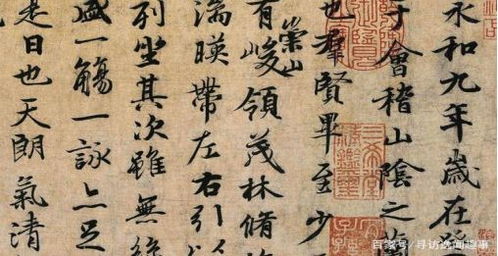 永和九年歲在
于會稽山陰之蘭
也羣賢畢至少
崇山
有峻領茂林脩
湍暎帶左右引以
列坐其次雖無絲
盛一觴一詠亦足
是日也天朗氣清
百家号/寻访逸闻趣事